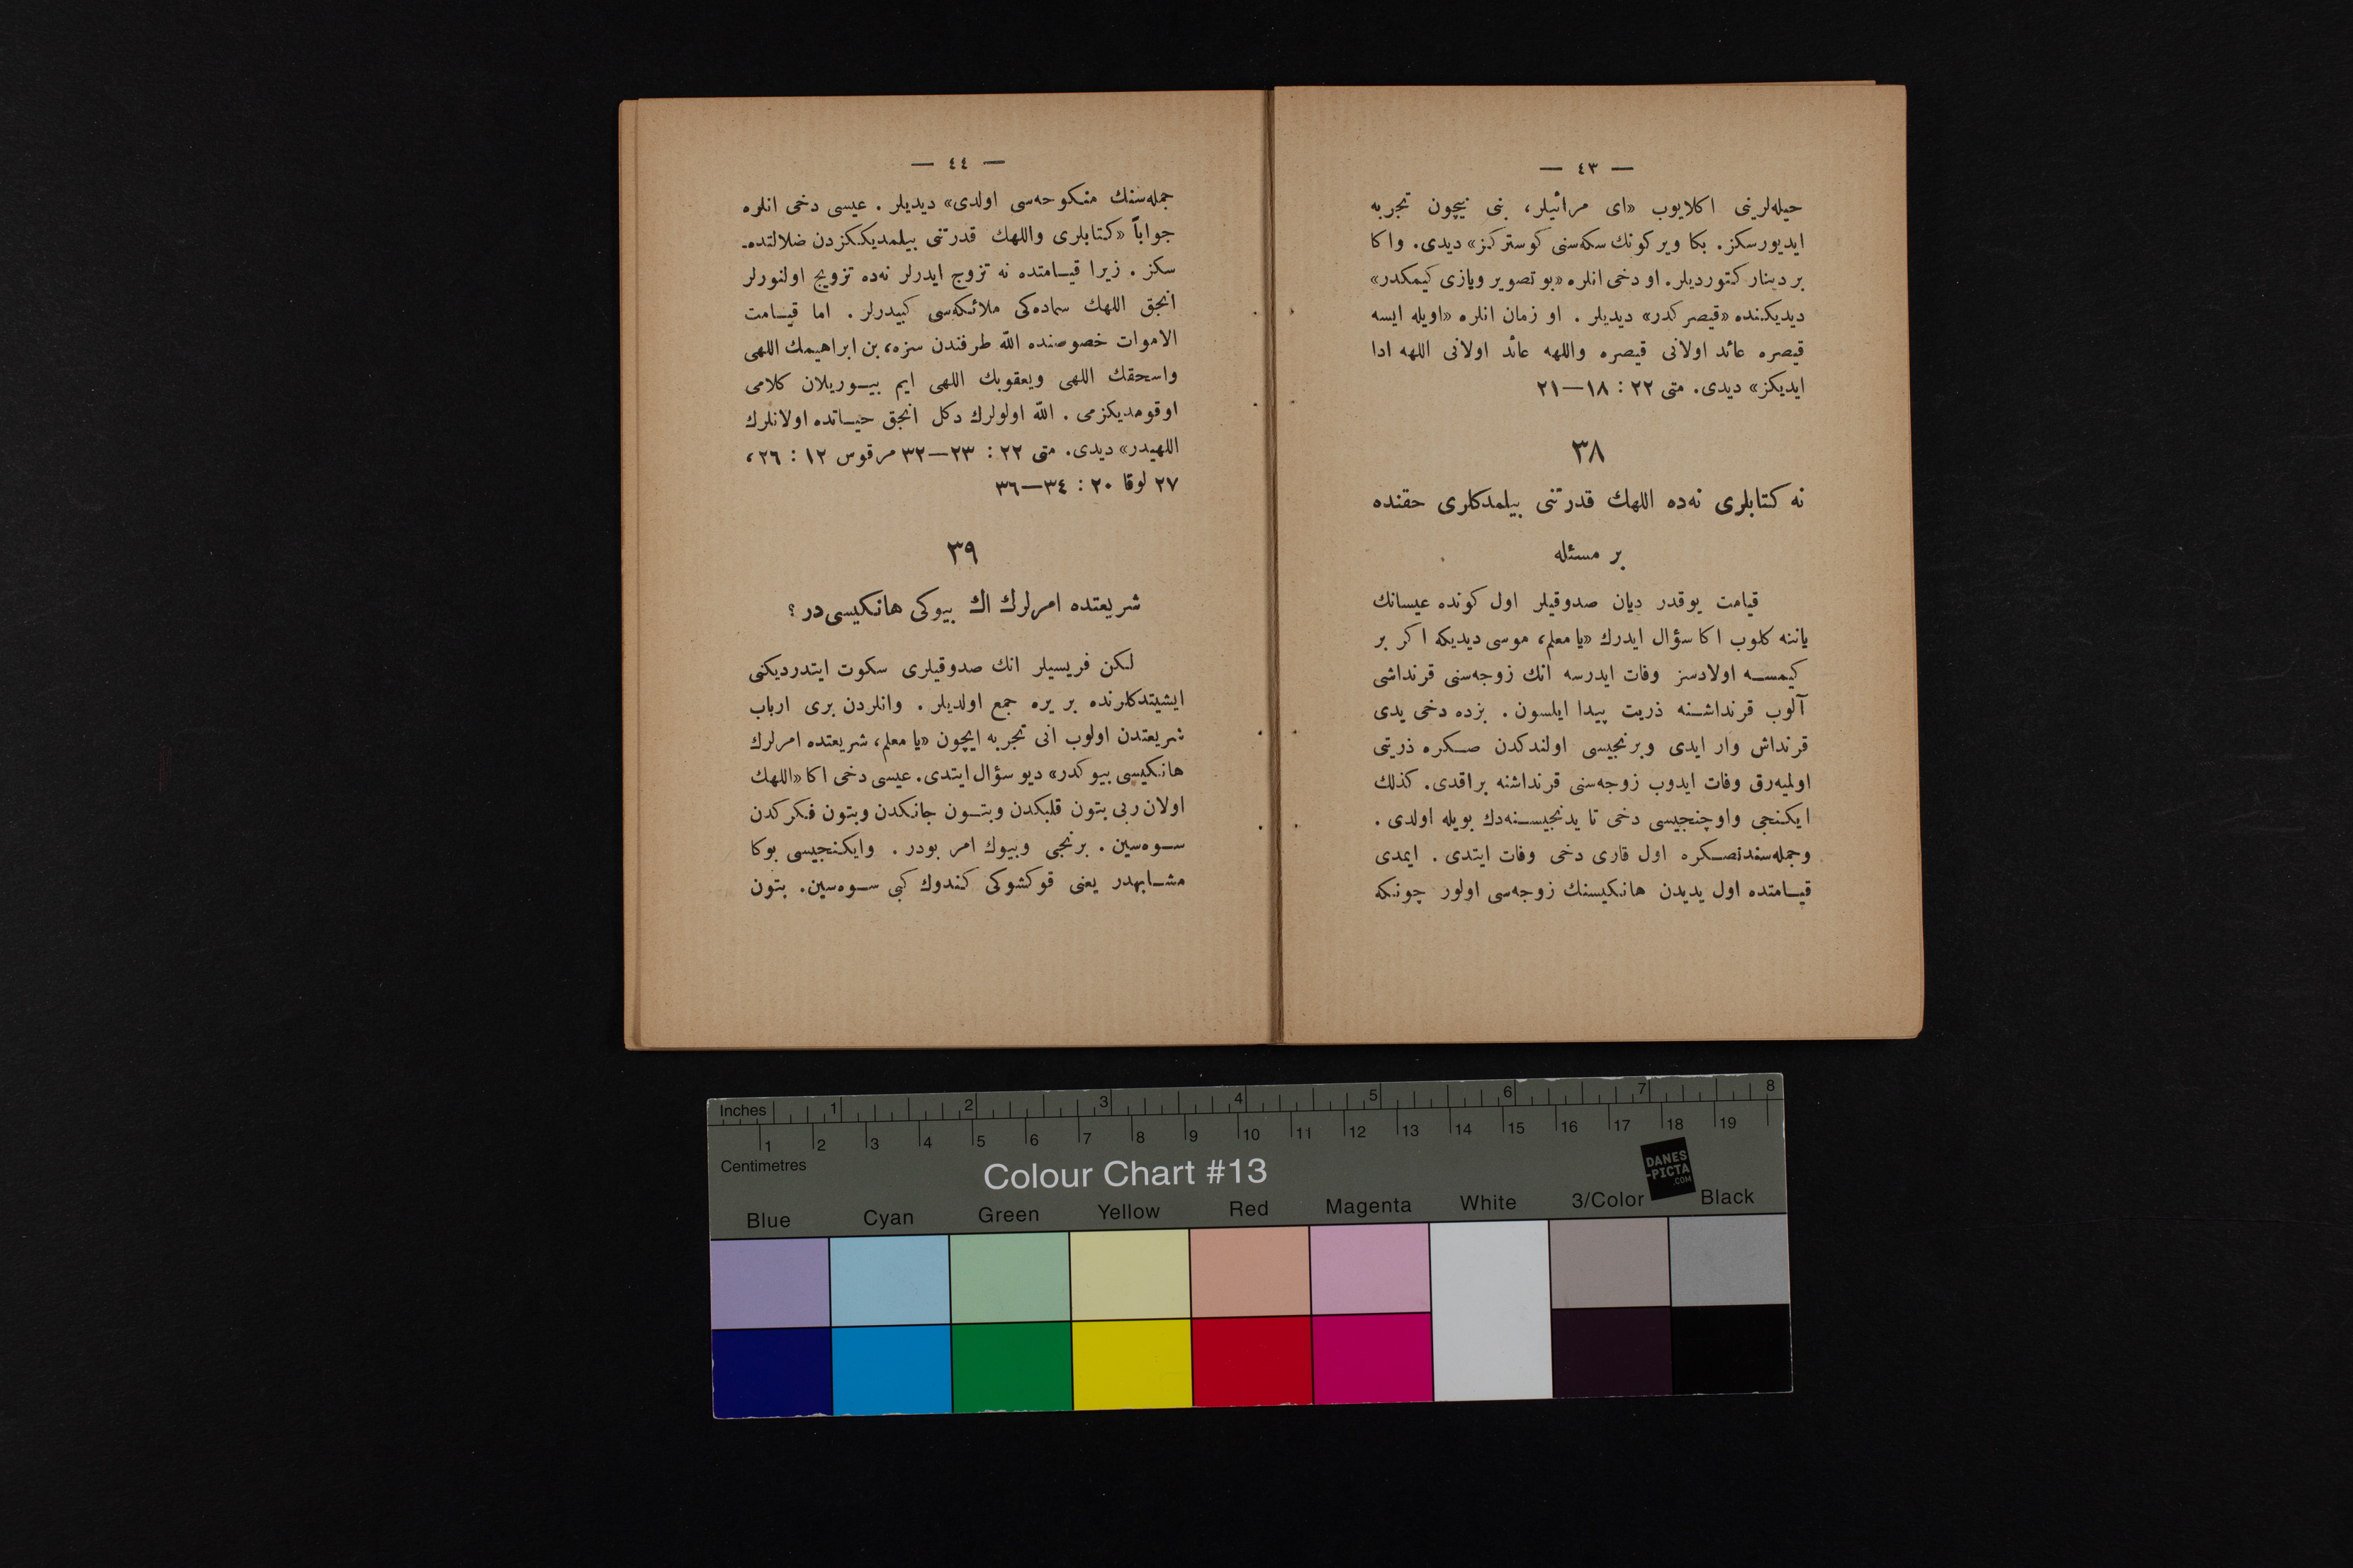 — ٤٣ —
حیله‌لرینی اكلایوب «ای مرائیلر، بنی نیچون تجربه
ایدیورسكز. بكا ویركونك سكه‌سنی كوستركز» دیدی. واكا
بر دینار كتوردیلر. او دخی انلره «بو تصویر ویازی كیمكدر»
دیدیكنده «قیصركدر» دیدیلر . او زمان انلره «اویله ایسه
قیصره عائد اولانی قیصره واللهه عائد اولانی اللهه ادا
ایدیكز» دیدی. متی ٢٢ : ١٨—٢١
٣٨
نه كتابلری نه‌ده اللهك قدرتنی بیلمدكلری حقنده
بر مسئله
قیامت یوقدر دیان صدوقیلر اول كونده عیسانك
یاننه كلوب اكا سؤال ایدرك «یا معلم، موسی دیدیكه اكر بر
كیمسه اولادسز وفات ایدرسه انك زوجه‌سنی قرنداشی
آلوب قرنداشنه ذریت پیدا ایلسون . بزده دخی یدی
قرنداش وار ایدی وبرنجیسی اولندكدن صكره ذریتی
اولمیه‌رق وفات ایدوب زوجه‌سنی قرنداشنه براقدی. كذلك
ایكنجی واوچنجیسی دخی تا یدنجیسنه‌دك بویله اولدی .
وجمله‌سندنصكره اول قاری دخی وفات ایتدی . ایمدی
قیامتده اول یدیدن هانكیسنك زوجه‌سی اولور چونكه
— ٤٤ —
جمله‌سنك منكوحه‌سی اولدی» دیدیلر . عیسی دخی انلره
جواباً «كتابلری واللهك قدرتنی بیلمدیككزدن ضلالتده-
سكز . زیرا قیامتده نه تزوج ایدرلر نه‌ده تزویج اولنورلر
انجق اللهك سماده‌كی ملائكه‌سی كبیدرلر . اما قیامت
الاموات خصوصنده الله طرفندن سزه، بن ابراهیمك اللهی
واسحقك اللهی ویعقوبك اللهی ایم بیوریلان كلامی
اوقومدیكزمی . الله اولولرك دكل انجق حیاتده اولانلرك
اللهیدر» دیدی. متی ٢٢ : ٢٣—٣٢ مرقوس ١٢ : ٢٦،
٢٧ لوقا ٢٠ : ٣٤—٣٦
٣٩
شریعتده امرلرك اك بیوكی هانكیسی‌در ؟
لكن فریسیلر انك صدوقیلری سكوت ایتدردیكنی
ایشیتدكلرنده بر یره جمع اولدیلر . وانلردن بری ارباب
شریعتدن اولوب انی تجربه ایچون «یا معلم، شریعتده امرلرك
هانكیسی بیوكدر» دیو سؤال ایتدی. عیسی دخی اكا «اللهك
اولان ربی بتون قلبكدن وبتون جانكدن وبتون فكركدن
سوه‌سین . برنجی وبیوك امر بودر . وایكنجیسی بوكا
مشابهدر یعنی قوكشوكی كندوك كبی سوه‌سین. بتون
Inches 1 2 3 4 5 6 7 8
1 2 3 4 5 6 7 8 9 10 11 12 13 14 15 16 17 18 19
Centimetres
Colour Chart #13
DANES
-PICTA
.COM
Blue Cyan Green Yellow Red Magenta White 3/Color Black